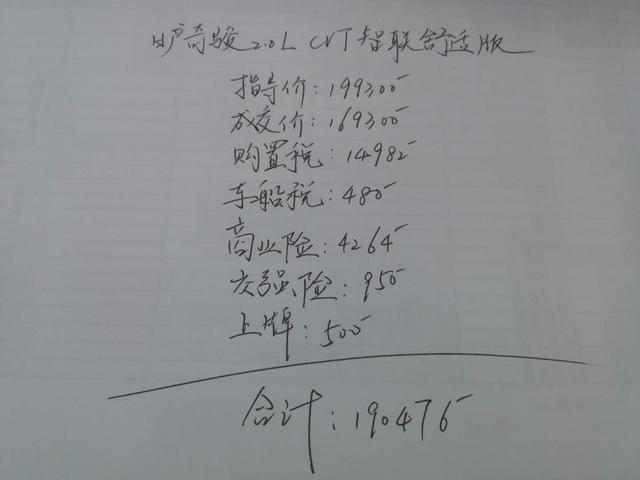 日产奇骏2.0L CVT智联舒适版
指导价:199300-
成交价:169300-
购置税:14982-
车船税:480-
商业险:4264-
交强险:950-
上牌:500-
合计:190476-